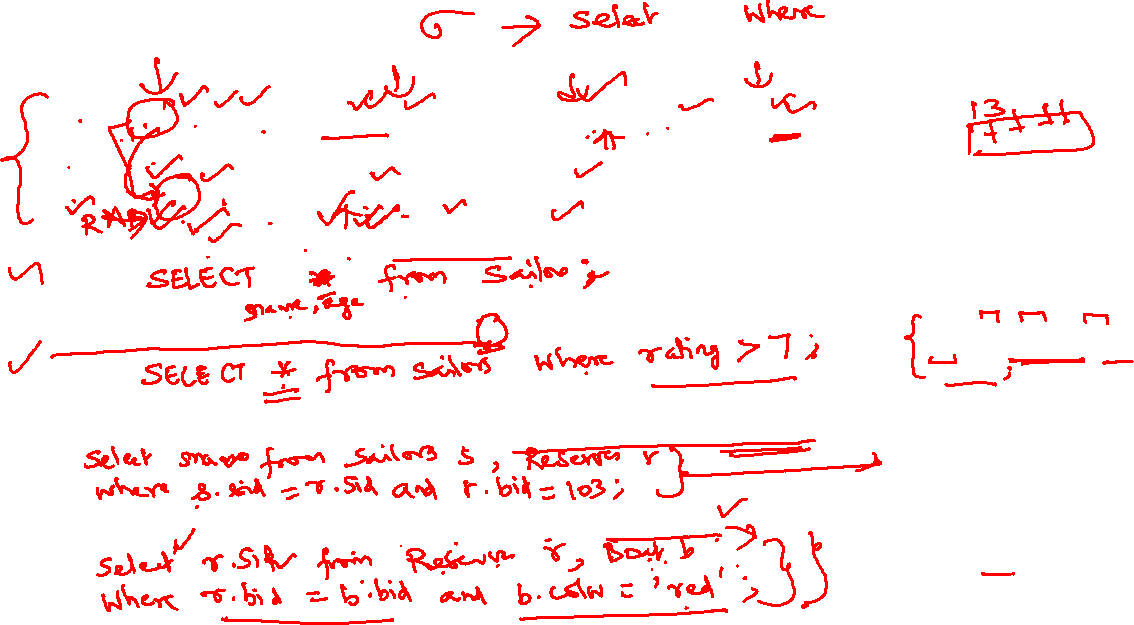 σ → select where
13
SELECT * from Sailors;
sname, age
SELECT * from sailors where rating > 7;
select sname from sailors s, Reserves r
where s.sid = r.sid and r.bid = 103;
select r.sid from Reserves r, Boat b
where r.bid = b.bid and b.color = 'red';